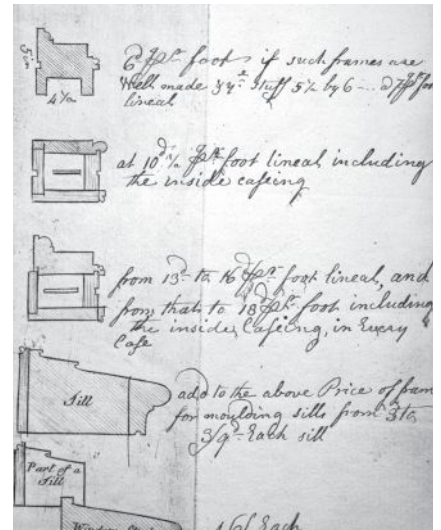 5 in
4½
6d pr foot, if such frames are
Well made & ye Stuff 5½ by 6 ... a 7d pr foot
lineal
at 10d ½ pr foot lineal including
the inside caseing
from 13d to 16d pr foot lineal, and
from that to 18d pr foot including
the inside Caseing, in Every
Case
Sill
add to the above Price of fram
for moulding sills from 3/ to
3/9d Each sill
Part of a
Sill
Window
Each